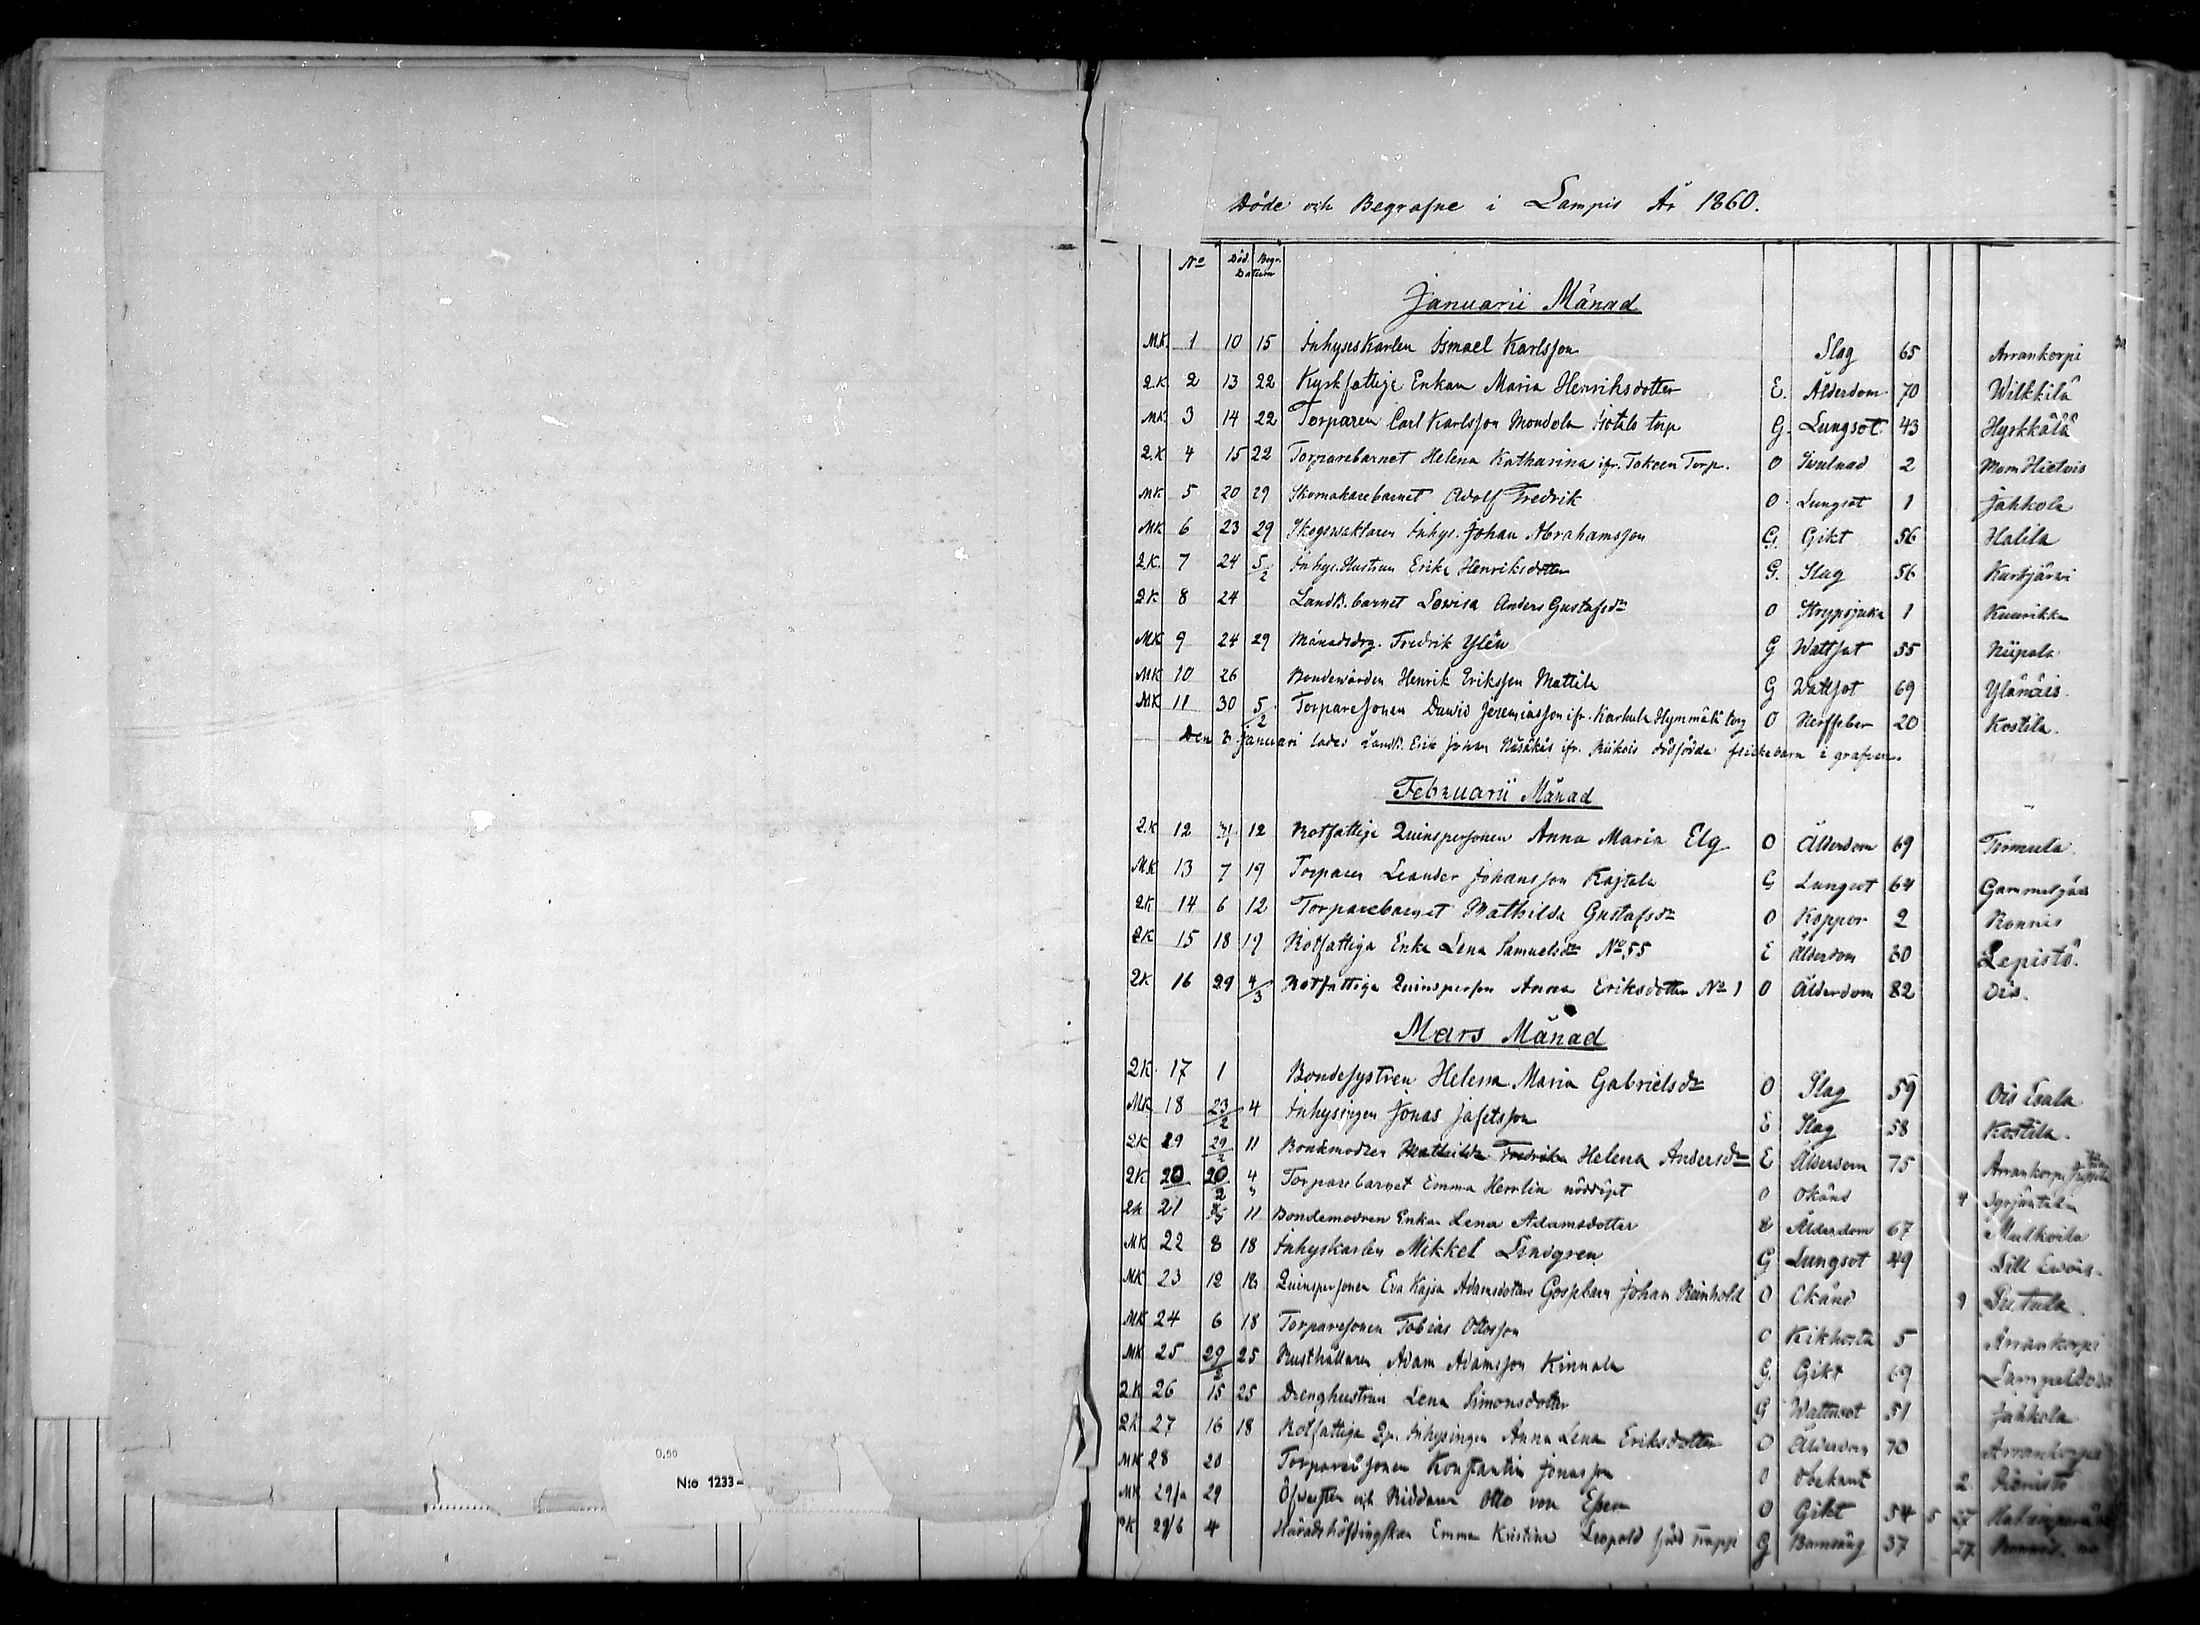 Döde och Begrafne i Lampis År 1860.
No Död. Begr.
Datum
Januarii Månad
MK 1 10 15 Inhyseskarlen Ismael Karlsson Slag 65 Arrankorpi
QK 2 13 22 Kyrkfattige Enkan Maria Henriksdotter E. Ålderdom 70 Wilkkilä
MK 3 14 22 Torparen Carl Karlsson Mondola torp G. Lungsot 43 Hyrkkälä
QK 4 15 22 Torparebarnet Helena Katharina ifr. Torp. O 2
MK 5 20 29 Skomakarebarnet Adolf Fredrik O Lungsot 1 Jahkola
MK 6 23 29 Skogswaktaren Inhys. Johan Abrahamsson G. Gikt 56 Halila
QK 7 24 5/2 Inhys.Hustrun Erika Henriksdotter G. Slag 56 Kurtjärvi
QK 8 24 Landb.barnet Lovisa Anders Gustafsdr O Strypsjuka 1 Kuurikka
MK 9 24 29 Månadsdrg. Fredrik Ylén G Wattsot 55
MK 10 26 Bondevärden Henrik Eriksson Mattila G Wattsot 69 Ylänäis.
MK 11 30 5/2 Torparesonen Dawid Jeremiasson ifr. Karhula torp O Nerffeber 20 Kostila.
Den 8 Januari lades Landb. Erik Johan ifr. dödfödda flickebarn i grafven.
Februarii Månad
QK 12 12 Rotfattige Quinspersonen Anna Maria Elg O Ålderdom 69 Tirmula
MK 13 7 19 Torparen Leander Johansson Kajtala G Lungsot 64 Gammelgård
QK 14 6 12 Torparebarnet Mathilda Gustafsdr O Koppor 2 Ronnis
QK 15 18 19 Rotfattiga Enka Lena Samuelsdr No 55 E Ålderdom 80 Lepistö.
QK 16 29 4/3 Rotfattiga Quinsperson Anna Eriksdotter No 1 O Ålderdom 82 Ois.
Mars Månad
QK 17 1 Bondesystren Helena Maria Gabrielsdr O Slag 59 Ois
MK 18 23/2 4 Inhysingen Jonas Jafetsson E Slag 58 Kostila.
QK 19 29/2 11 Bondmodren Mathilda Fredrika Helena Andersdr E Ålderdom 75 Arrankorpi
QK 20 20/2 4 Torparebarnet Emma nöddöpt O Okänd 4 Syrjäntaka
QK 21 11 Bondemodren Enkan Lena Adamsdotter E Ålderdom 67 Mulkoila
MK 22 8 18 Inhyskarlen Mikkel Lindgren G Lungsot 49
MK 23 12 18 Quinspersonen Eva Kajsa Adamsdotters Gossebarn Johan Reinhold O Okänd 9 Pitula.
MK 24 6 18 Torparesonen Tobias Ottosson O Kikhosta 5 Arrankorpi
MK 25 29/2 25 Rusthållaren Adam Adamsson Kinnala G. Gikt 69
QK 26 15 25 Drenghustrun Lena Simonsdotter G Wattusot 51 Jahkola
QK 27 16 18 Rotfattige Qp. Inhysingen Anna Lena Eriksdotter O Ålderdom 70 Arrankorpi
MK 28 20 Torparesonen Konstantin Jonasson O Obekant 2
MK 29/a 29 Öfversten och Riddaren Otto von Essen O Gikt 54 5 27
QK 29/b 4 Häradshöfdingskan Emma Kristina Leopold född Trapp G Barnsäng 37 27
0,50
N:o 1233